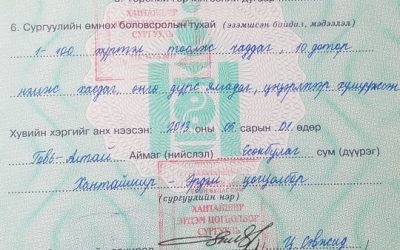 6. Сургуулийн өмнөх боловсролын тухай (эзэмшсэн байдал, мэдээлэл)
1-100 хүртэл тоолж чаддаг, 10 дотор
нэмж хасдаг, өнгө дүрс ялгадаг, цэцэрлэгээр хүмүүжсэн
Хувийн хэргийг анх нээсэн: 2013 оны 05 сарын 01 өдөр
Говь-Алтай Аймаг (нийслэл) Есөнбулаг сум (дүүрэг)
Хантайшир - Эрдэм цогцолбор
(сургуулийн нэр)
ХАНТАЙШИР
ЭРДЭМ ЦОГЦОЛБОР
СУРГУУЛЬ